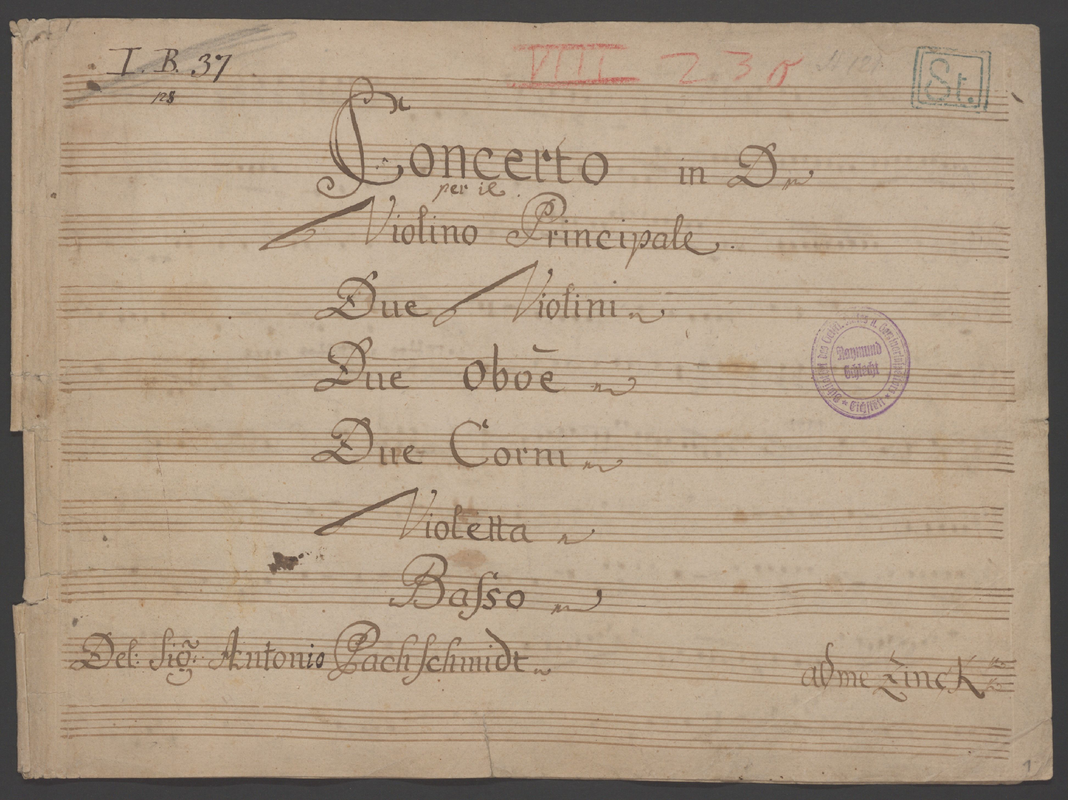 I. B. 37
128
VIII 230
St.
Concerto in D
per il
Violino Principale.
Due Violini
Due Oboē
Due Corni
Raymund
Schlecht
Violetta
Basso
Del: Sig: Antonio Pachschmidt
ad me Zinck
1